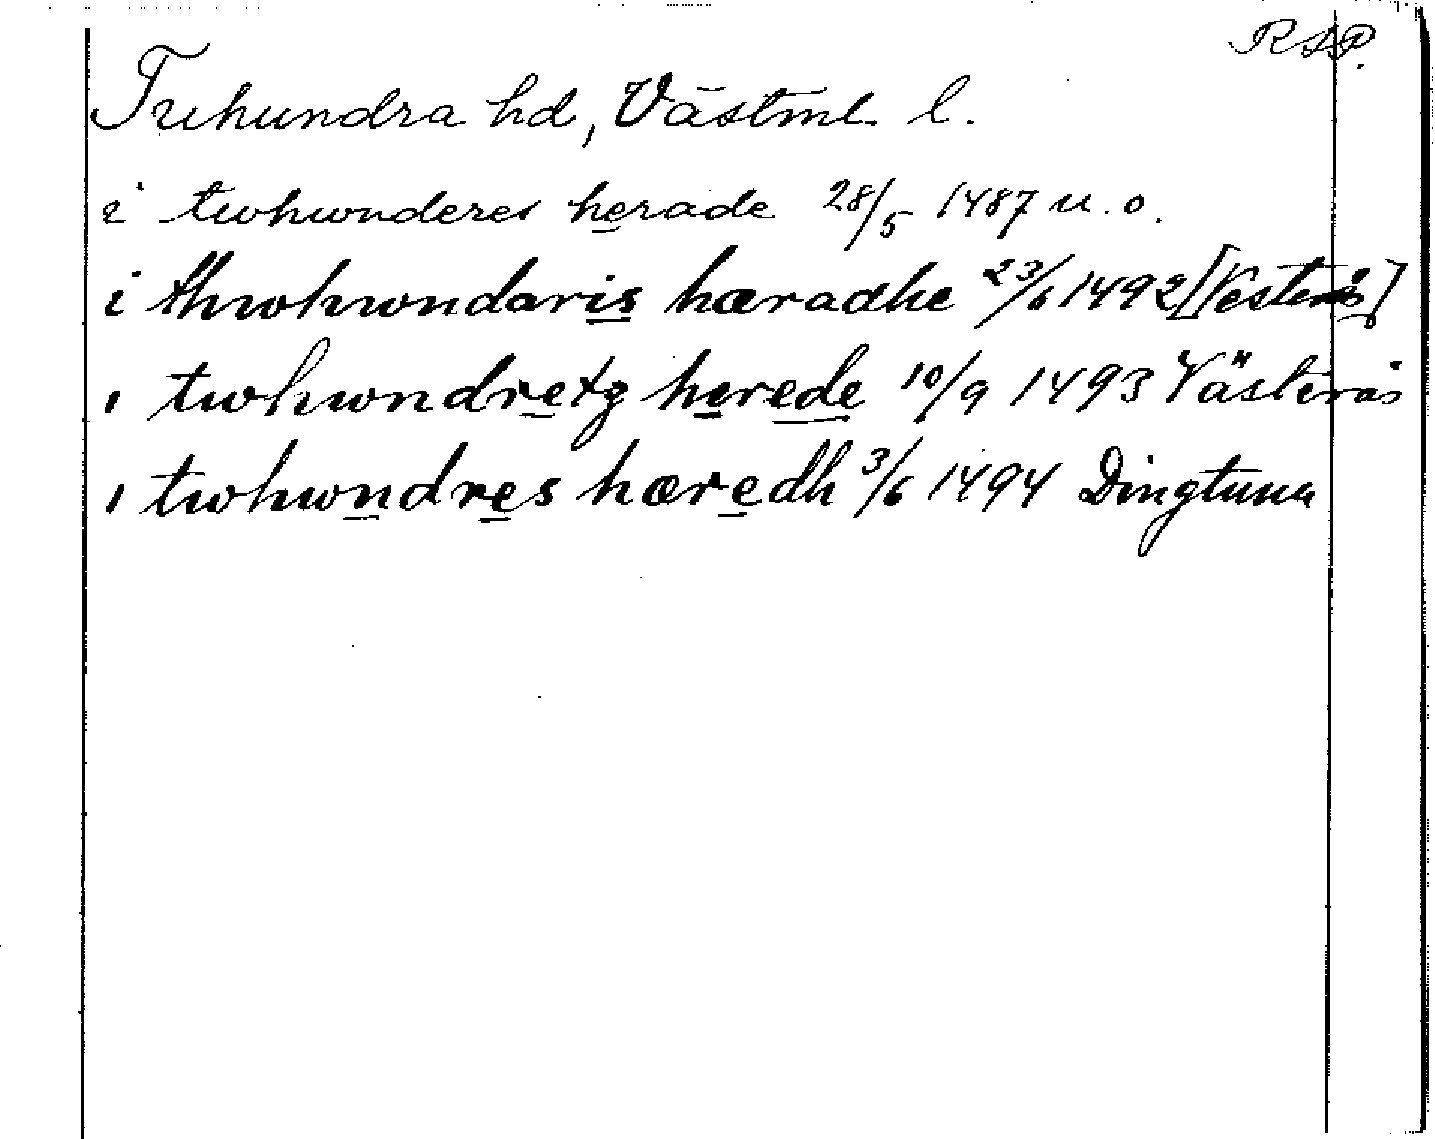 RAP.
Tuhundra hd, Västml. l.
i twhwnderes herade 28/5 1487 u. o.
i thwhwndaris hæradhe 23/6 1492 [Vesterås]
i twhwndretg herede 10/9 1493 Västerås
i twhwndres hæredh 3/6 1494 Dingtuna